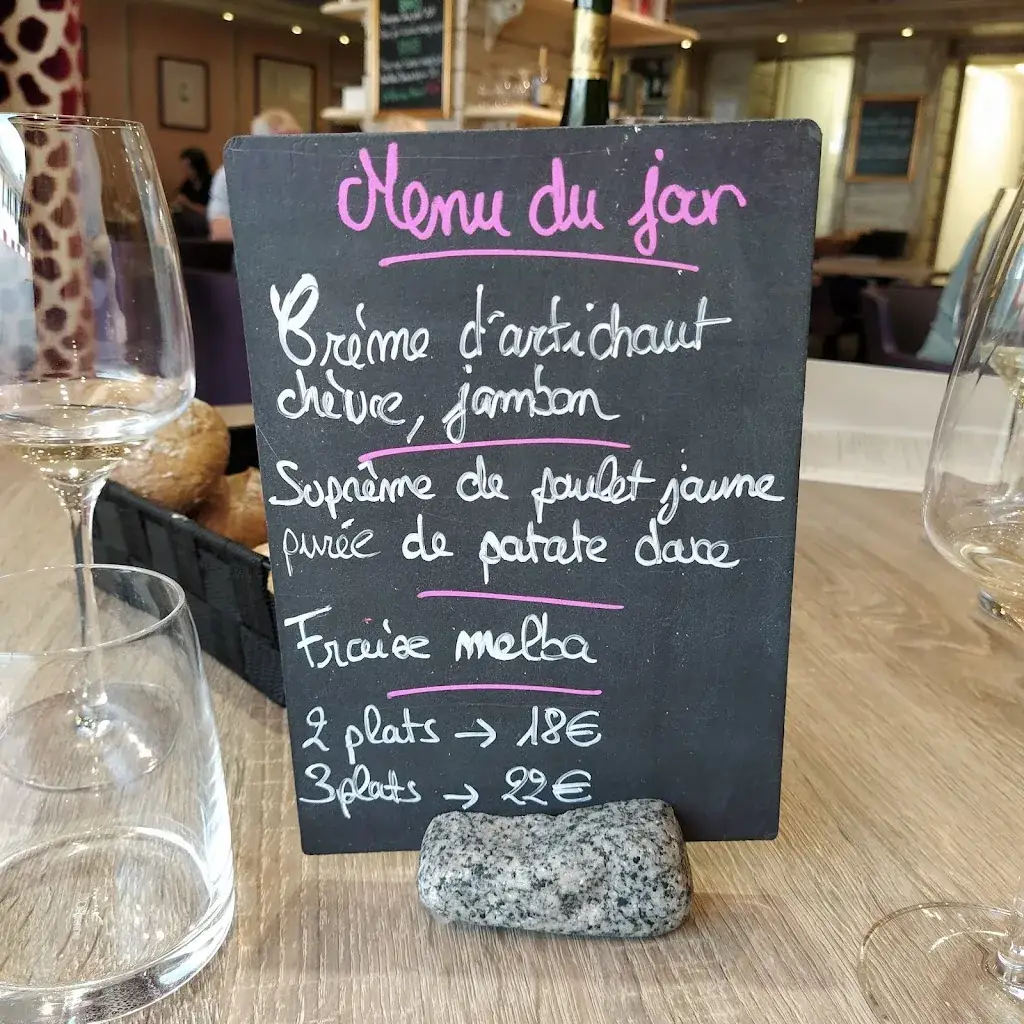 Menu du jour
Crème d'artichaut
chèvre, jambon
Suprême de poulet jaune
purée de patate douce
Fraise melba
2 plats → 18€
3 plats → 22€